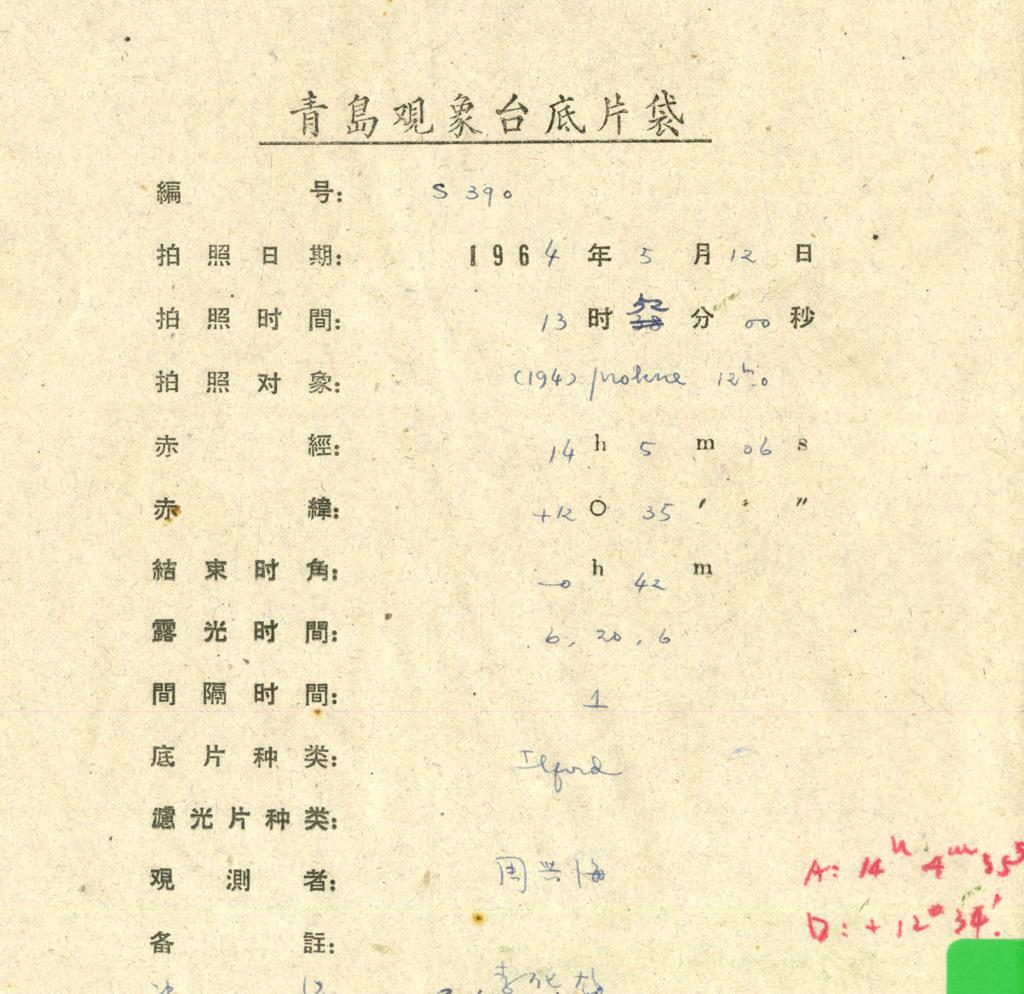 青島观象台底片袋
編号: S 390
拍照日期: 1964年5月12日
拍照时間: 13时52分00秒
拍照对象: (194) prokne 12ᵐ.0
赤經: 14 h 5 m 06 s
赤緯: +12° 35′ ″
結束时角: -0 h 42 m
露光时間: 6, 20, 6
間隔时間: 1
底片种类: Ilford
濾光片种类:
观測者: 周兴海
A: 14ʰ 4ᵐ 35ˢ
备註:
D: +12° 34′.